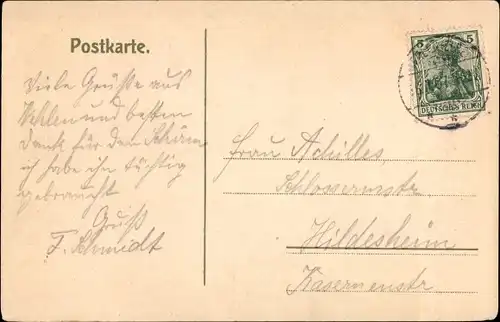 Postkarte.
5 5
DEUTSCHES REICH
Viele Grüße aus
Vehlen und besten
Dank für den Schirm
ich habe ihn tüchtig
gebraucht
Gruß
F. Schmidt
Frau Achilles
Hildesheim
Kasernenstr